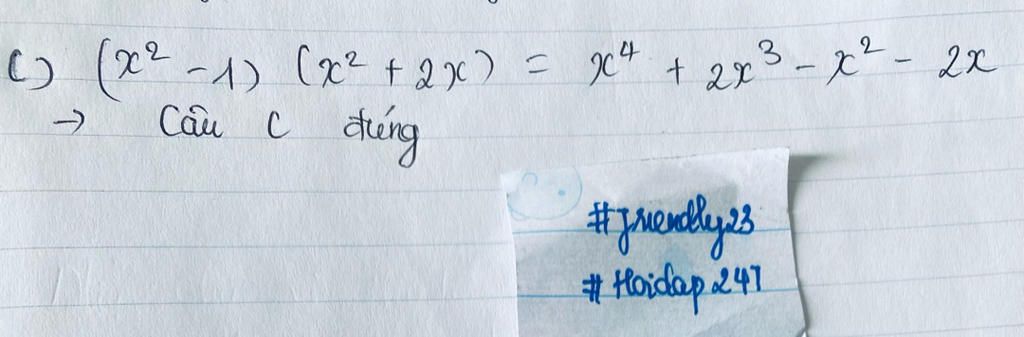 c) (x² - 1) (x² + 2x) = x⁴ + 2x³ - x² - 2x
→ Câu c đúng
#friendly23
#Hoidap247